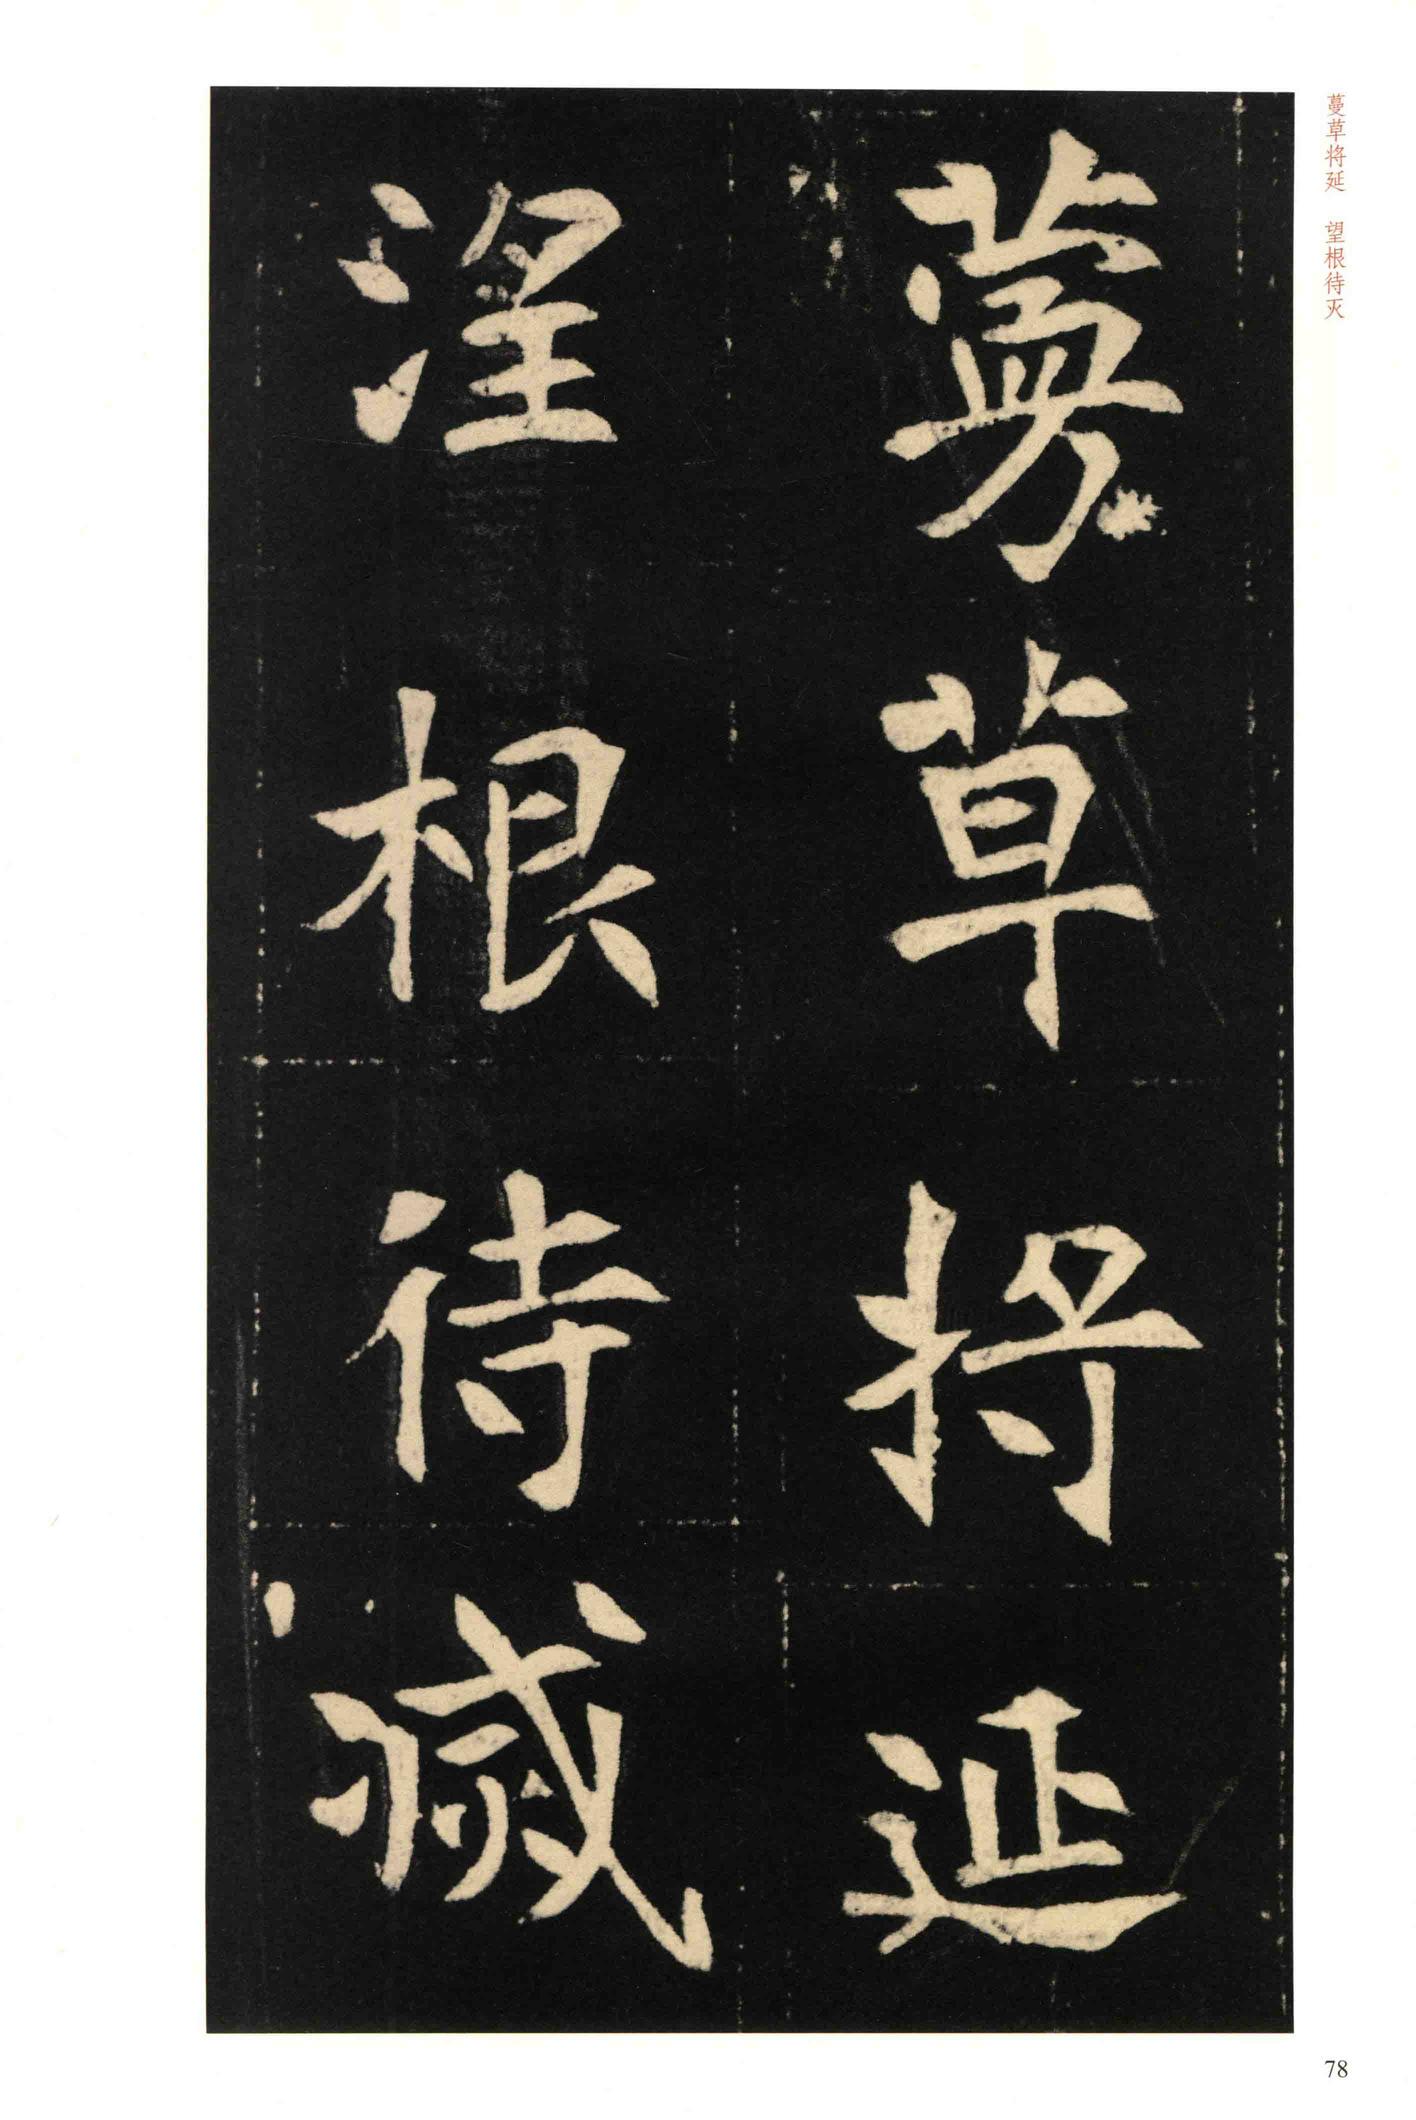 蔓草将延　望根待灭
蔓草将延
涅根待滅
78